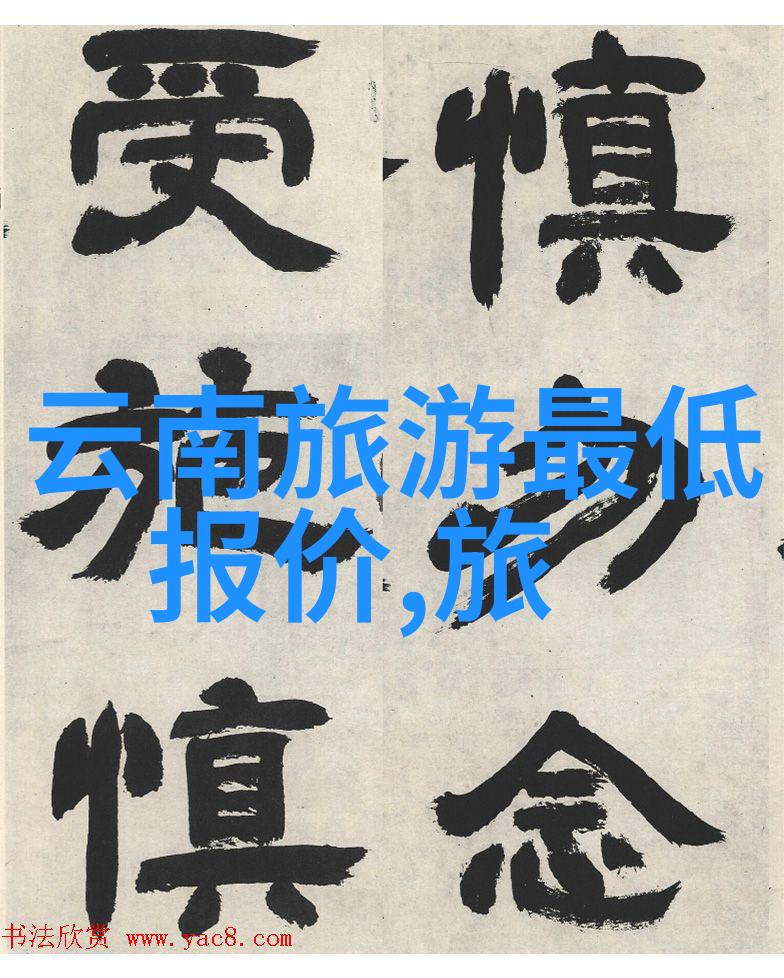 慎勿念
受施慎
云南旅游最低
报价,旅
书法欣赏 www.yac8.com